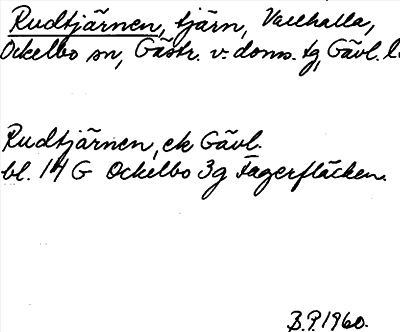 Rudtjärnen, tjärn, Vallhalla,
Ockelbo sn, Gästr. v. doms. tg, Gävl. l.
Rudtjärnen, ek Gävl.
bl. 14 G Ockelbo 3g Fagerfläcken.
B.P. 1960.